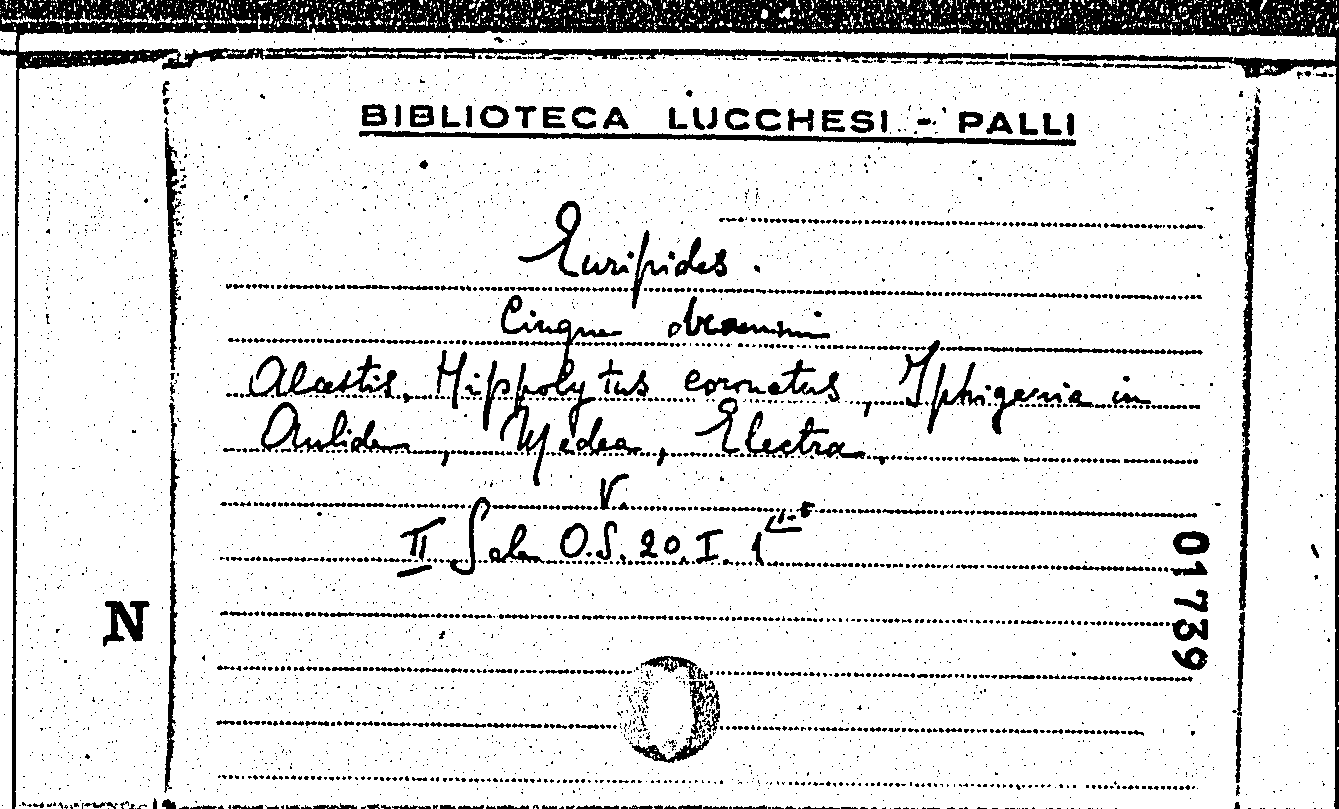 BIBLIOTECA LUCCHESI - PALLI
Euripides.
Cinque drammi
Alcestis, Hippolytus coronatus, Iphigenia in
Aulide, Medea, Electra.
V.
II Sala O.S. 20. I. 1
N
01739